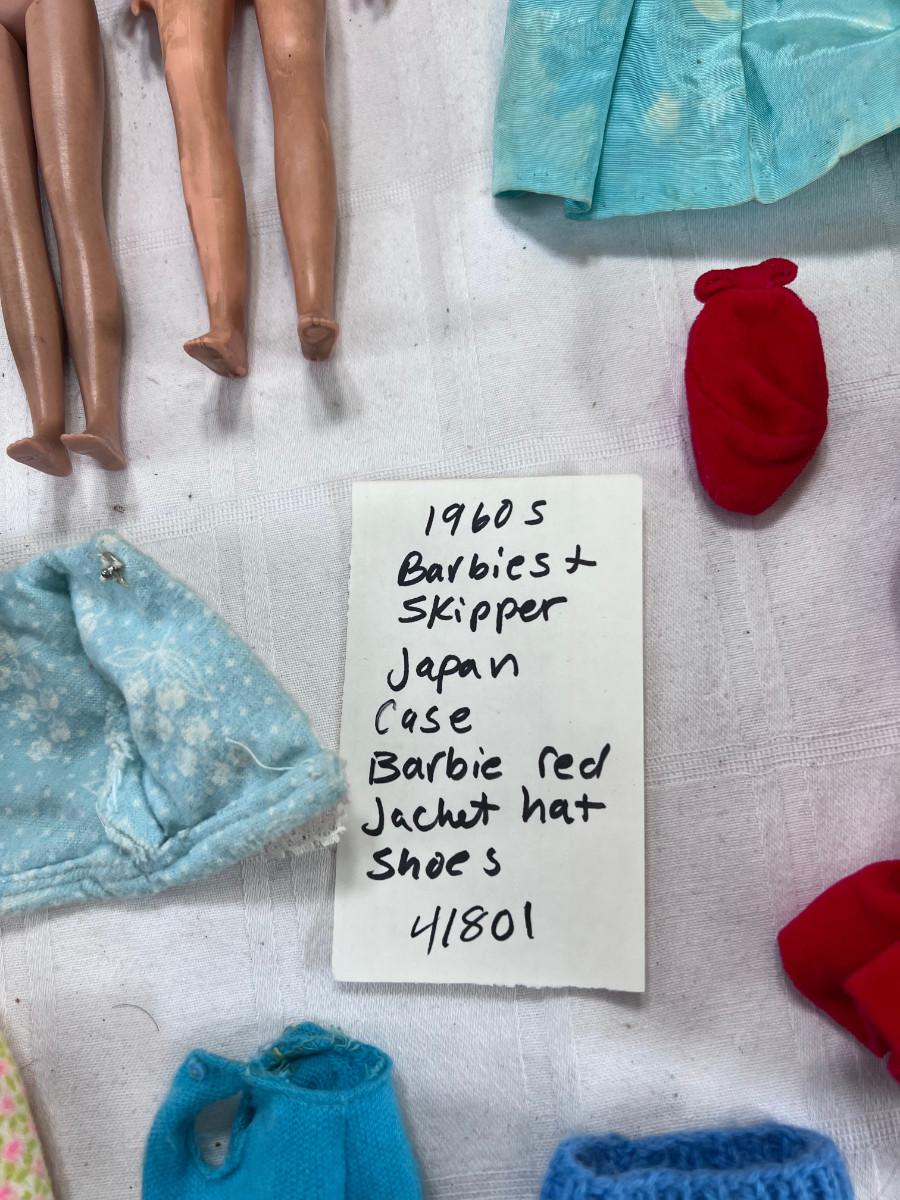 1960s
Barbies +
Skipper
Japan
Case
Barbie red
Jacket hat
Shoes
41801